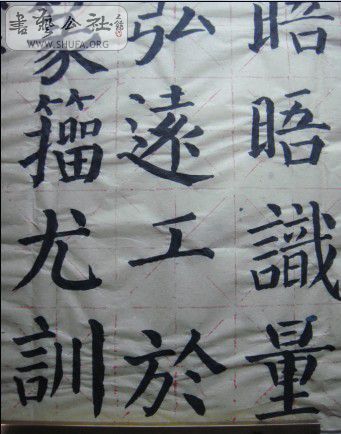 晤晤識量
弘遠工於
篆籀尤訓
書藝公社
WWW.SHUFA.ORG